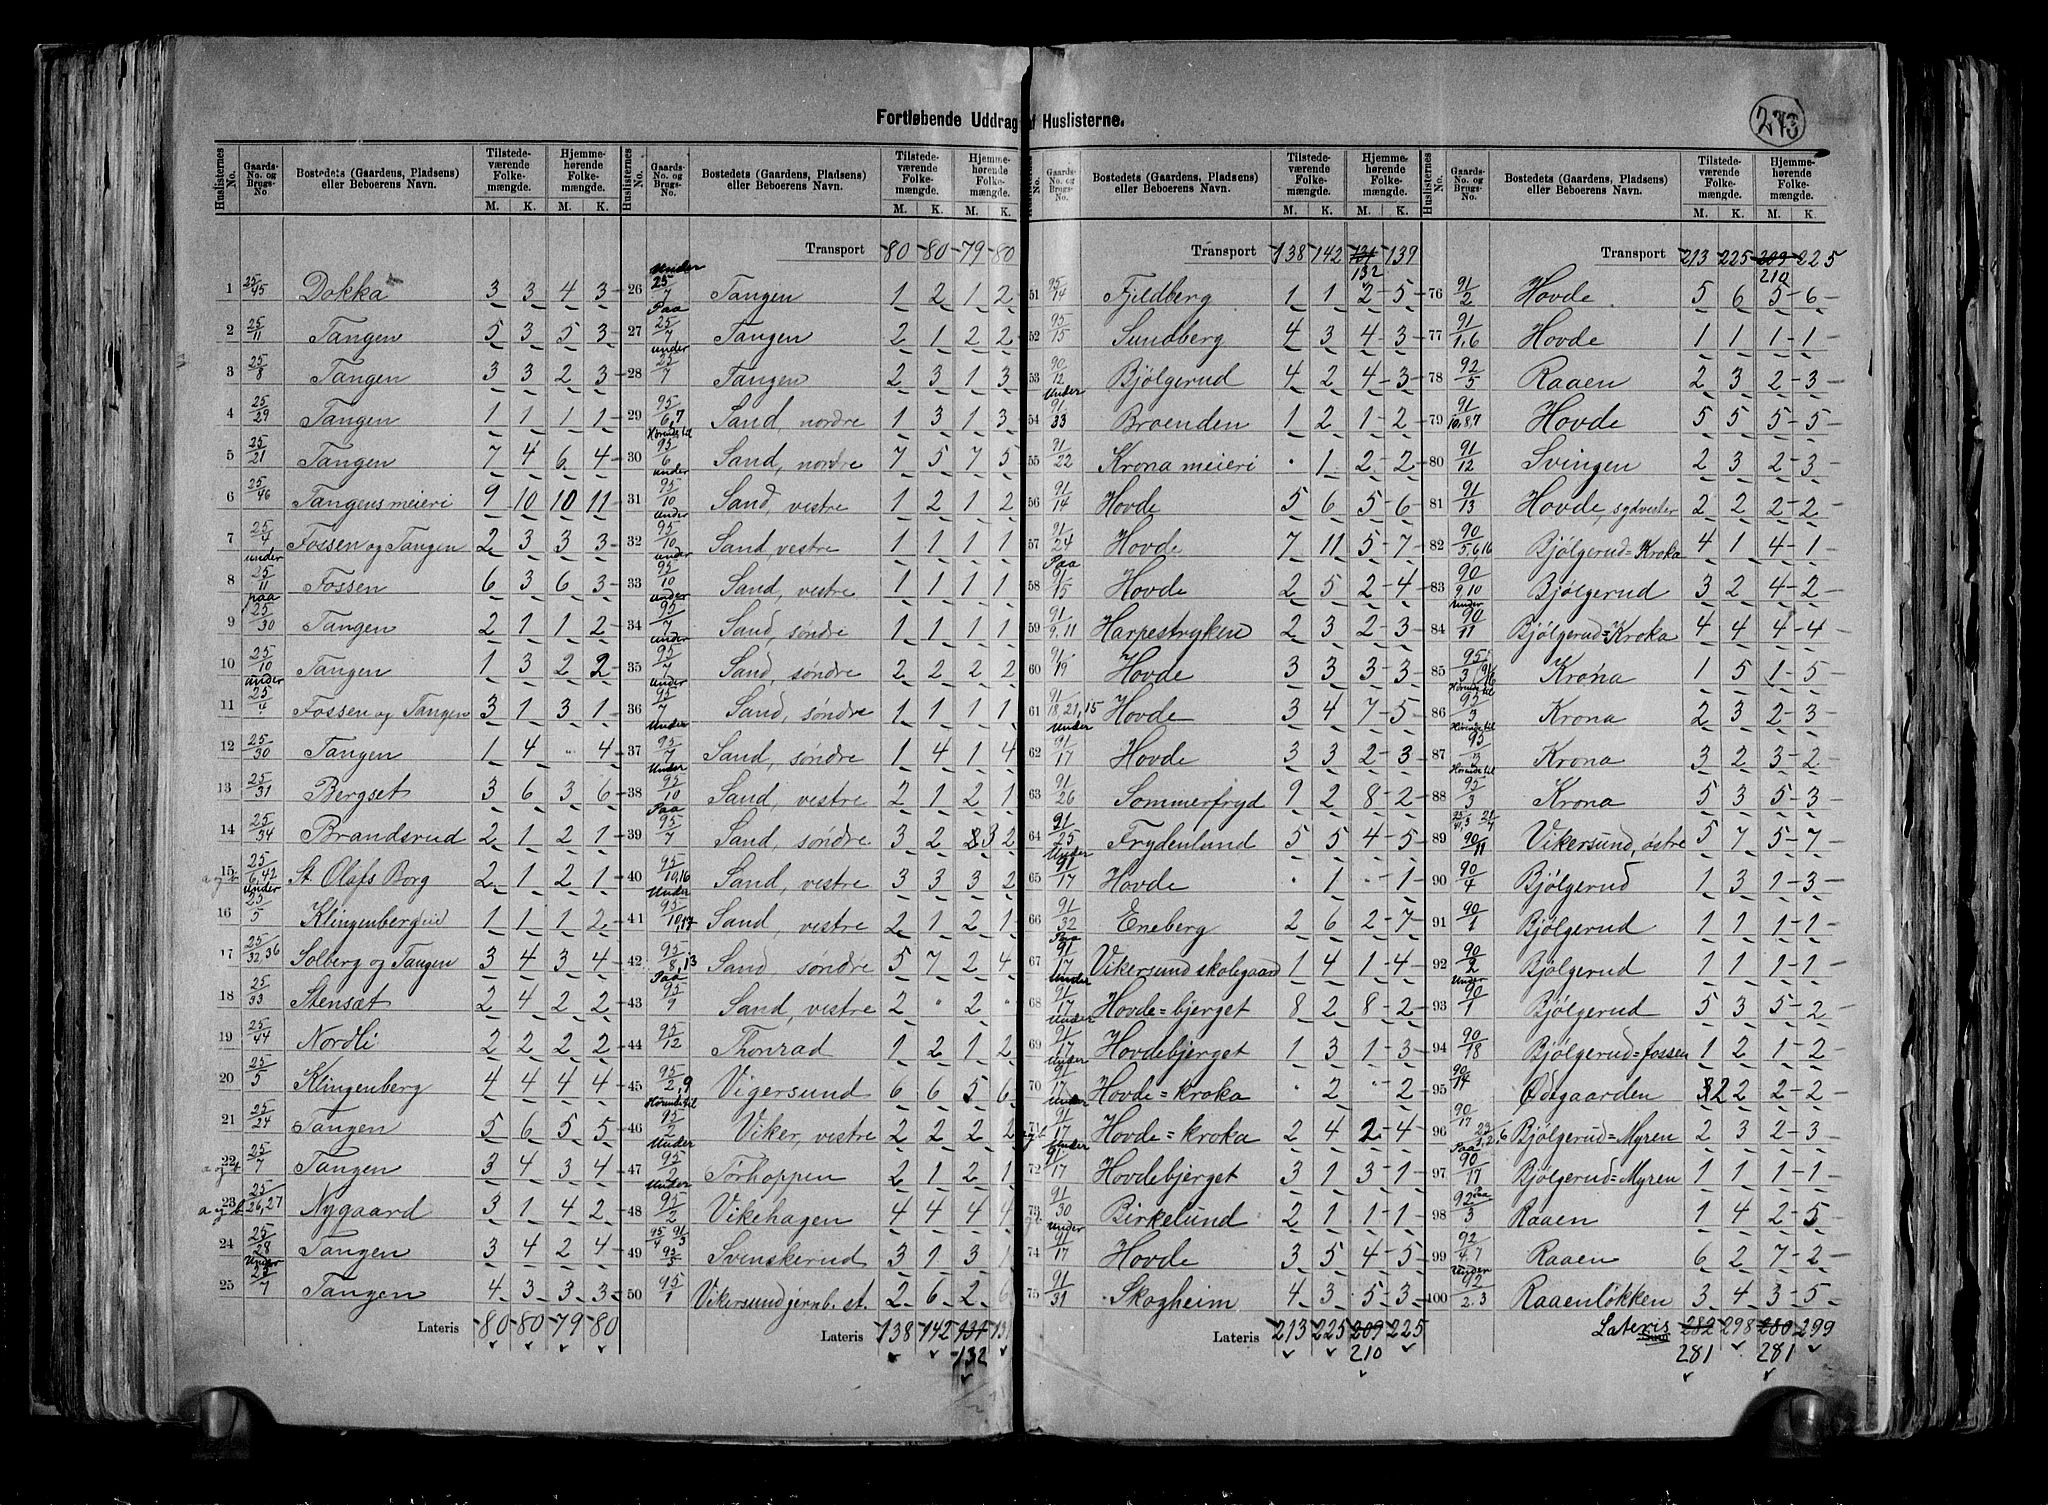 273
Fortløbende Uddrag af Huslisterne.
Huslisternes No. | Gaards-No. og Brugs-No | Bostedets (Gaardens, Pladsens) eller Beboerens Navn. | Tilstedeværende Folkemængde. M. K. | Hjemmehørende Folkemængde. M. K.
1 25/45 Dokka 3 3 4 3
2 25/11 Tangen 5 3 5 3
3 25/8 Tangen 3 3 2 3
4 25/29 Tangen 1 1 1 1
5 25/21 Tangen 7 4 6 4
6 25/46 Tangens meieri 9 10 10 11
7 25/4 Fossen og Tangen 2 3 3 3
8 under 25/11 Fossen 6 3 6 3
9 paa 25/30 Tangen 2 1 1 2
10 25/10 Tangen 1 3 2 2
11 under 25/4 Fossen og Tangen 3 1 3 1
12 25/30 Tangen 1 4 " 4
13 25/31 Bergset 3 6 3 6
14 25/34 Brandsrud 2 1 2 1
15 25/6,42 St. Olafs Borg 2 1 2 1
16 Under 25/5 Klingenberg 1 1 1 2
17 25/32,36 Solberg og Tangen 3 4 3 4
18 25/33 Stensæt 2 4 2 2
19 25/44 Nordli 2 2 2 2
20 25/5 Klingenberg 4 4 4 4
21 25/24 Tangen 5 6 5 5
22 25/7 Tangen 3 4 3 4
23 25/26,27 Nygaard 3 1 4 2
24 25/28 Tangen 3 4 2 4
25 Under 25/7 Tangen 4 3 3 3
Lateris 80 80 79 80
Huslisternes No. | Gaards-No. og Brugs-No. | Bostedets (Gaardens, Pladsens) eller Beboerens Navn. | Tilstedeværende Folkemængde. M. K. | Hjemmehørende Folkemængde. M. K.
Transport 80 80 79 80
26 Under 25/7 Tangen 1 2 1 2
27 Paa 25/7 Tangen 2 1 2 2
28 under 25/7 Tangen 2 3 1 3
29 95/6,7 Sand, nordre 1 3 1 3
30 Hørende til 95/6 Sand, nordre 7 5 7 5
31 under 95/10 Sand, vestre 1 2 1 2
32 under 95/10 Sand, vestre 1 1 1 1
33 under 95/10 Sand, vestre 1 1 1 1
34 under 95/7 Sand, søndre 1 1 1 1
35 under 95/7 Sand, søndre 2 2 2 2
36 under 95/7 Sand, søndre 1 1 1 1
37 Under 95/7 Sand, søndre 1 4 1 4
38 Under 95/10 Sand, vestre 2 1 2 1
39 Paa 95/7 Sand, søndre 3 2 3 2
40 95/10,16 Sand, vestre 3 3 3 2
41 Under 95/10,17 Sand, vestre 2 1 2 1
42 95/8,13 Sand, søndre 5 7 2 4
43 Paa 95/9 Sand, vestre 2 " 2 "
44 95/12 Thonrad 1 2 1 2
45 95/2,9 Vigersund 6 6 5 6
46 Hørende til 95/2 Viker, vestre 2 2 2 2
47 Under 95/2 Tørhoppen 2 1 2 1
48 Under 95/2 Vikehagen 4 4 4 4
49 95/4 91/3 92/3 Svenskerud 3 1 3 1
50 95/1 Vikersund jernb. st. 2 6 2 6
Lateris 138 142 131 13
132
Huslisternes No. | Gaards-No. og Brugs-No. | Bostedets (Gaardens, Pladsens) eller Beboerens Navn. | Tilstedeværende Folkemængde. M. K. | Hjemmehørende Folkemængde. M. K.
Transport 138 142 131 139
132
51 95/14 Fjeldberg 1 1 2 5
52 95/15 Sundberg 4 3 4 3
53 90/12 Bjølgerud 4 2 4 3
54 Under 91/33 Braenden 1 2 1 2
55 91/22 Krona meieri · 1 2 2
56 91/14 Hovde 5 6 5 6
57 91/24 Hovde 7 11 5 7
58 Paa 91/15 Hovde 2 5 2 4
59 91/9,11 Harpestryken 2 3 2 3
60 91/19 Hovde 3 3 3 3
61 91/18,21,15 Hovde 3 4 7 5
62 Under 91/17 Hovde 3 3 2 3
63 91/26 Sommerfryd 9 2 8 2
64 91/25 Frydenlund 5 5 4 5
65 Under 91/17 Hovde · 1 · 1
66 91/32 Eneberg 2 6 2 7
67 Paa 91/17 Vikersund skolegaard 1 4 1 4
68 Under 91/17 Hovde=bjerget 8 2 8 2
69 Under 91/17 Hovdebjerget 1 3 1 3
70 Under 91/17 Hovde=kroka · 2 " 2
71 under 91/17 Hovde=kroka 2 4 2 4
72 Under 91/17 Hovdebjerget 3 1 3 1
73 91/30 Birkelund 2 1 1 1
74 under 91/17 Hovde 3 5 4 5
75 91/31 Skogheim 4 3 5 3
Lateris 213 225 209 225
210
Huslisternes No. | Gaards-No. og Brugs-No. | Bostedets (Gaardens, Pladsens) eller Beboerens Navn. | Tilstedeværende Folkemængde. M. K. | Hjemmehørende Folkemængde. M. K.
Transport 213 225 209 225
210
76 91/2 Hovde 5 6 5 6
77 91/1,6 Hovde 1 1 1 1
78 92/5 Raaen 2 3 2 3
79 91/10,8,7 Hovde 5 5 5 5
80 91/12 Svingen 2 3 2 3
81 91/13 Hovde, sydvester 2 2 2 2
82 90/5,6,16 Bjølgerud=Kroka 4 1 4 1
83 90/9,10 Bjølgerud 3 2 4 2
84 Under 90/11 Bjølgerud=Kroka 4 4 4 4
85 95/3 Krona 1 5 1 5
86 Hørende til 95/3 Krona 2 3 2 3
87 Hørende til 95/3 Krona 3 2 3 2
88 Hørende til 95/3 Krona 5 3 5 3
89 90/11 Vikersund, østre 5 7 5 7
90 90/4 Bjølgerud 1 3 1 3
91 90/1 Bjølgerud 1 1 1 1
92 90/2 Bjølgerud 1 1 1 1
93 Under 90/1 Bjølgerud 5 3 5 2
94 90/18 Bjølgerud=fossen 1 2 1 2
95 90/14 Ødegaarden 2 2 2 2
96 90/17 Bjølgerud=Myren 2 3 2 3
97 Paa 90/17 Bjølgerud=Myren 1 1 1 1
98 Paa 92/3 Raaen 1 4 2 5
99 92/4,7 Raaen 6 2 7 2
100 Under 92/2,3 Raaenløkken 3 4 3 5
Lateris Sum 282 298 280 299
281 281